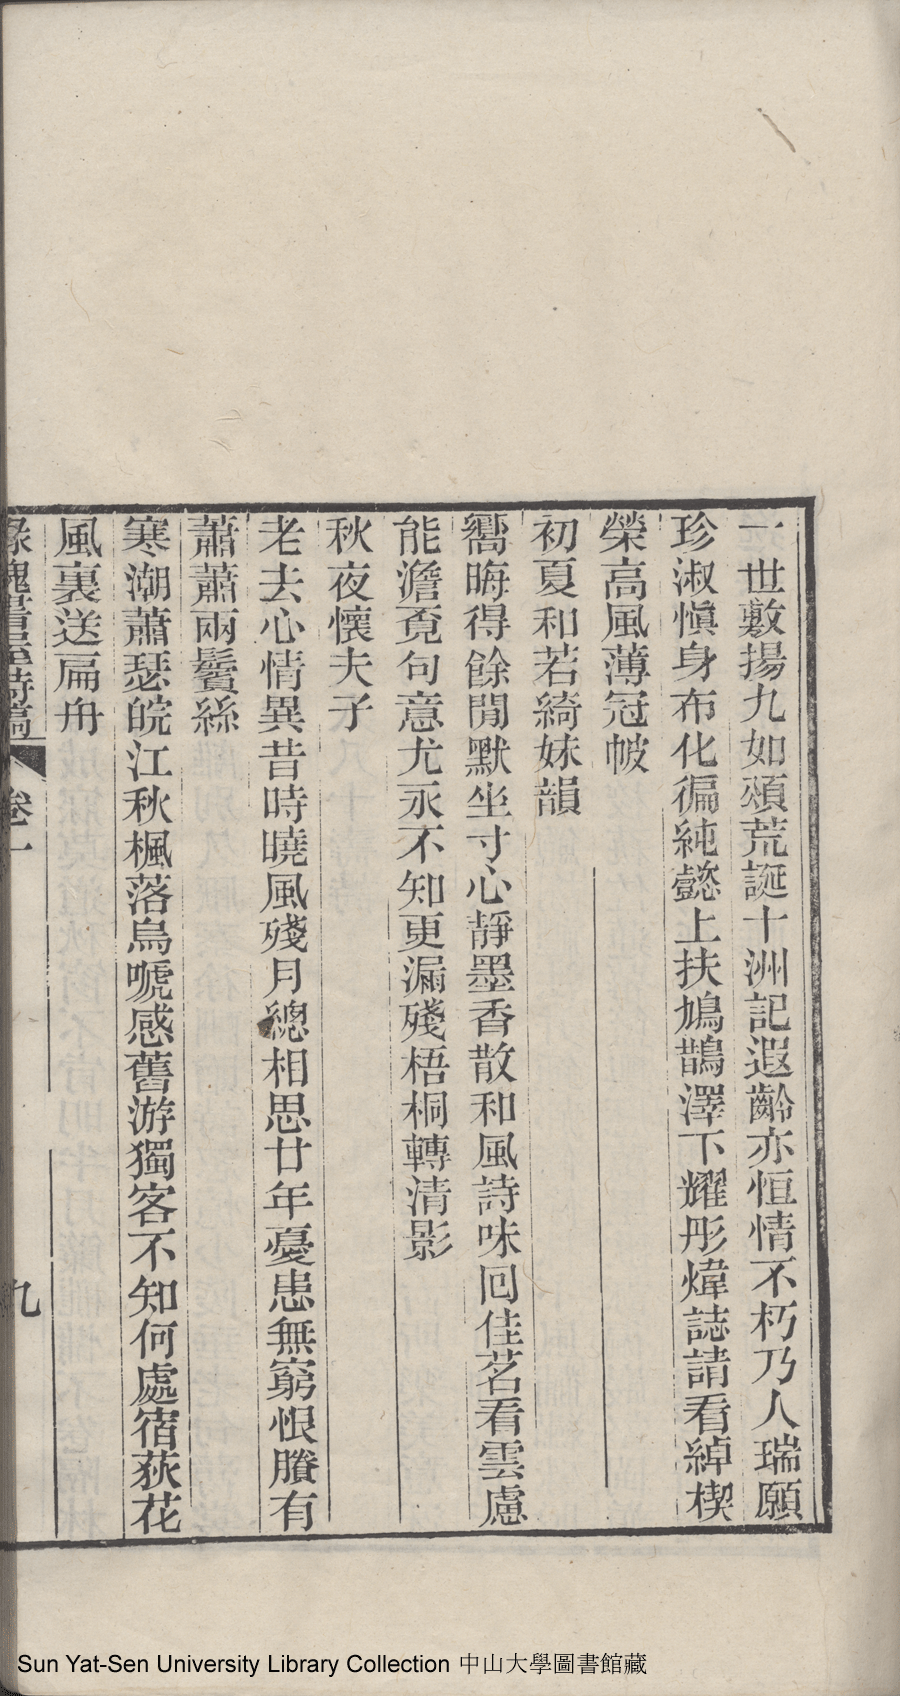 一世敷揚九如頌荒誕十洲記遐齡亦恒情不朽乃人瑞願
珍淑慎身布化徧純懿上扶鳩鵲澤下耀彤煒誌請看綽楔
榮高風薄冠帔
初夏和若綺妹韻
嚮晦得餘閒默坐寸心靜墨香散和風詩味回佳茗看雲慮
能澹覓句意尤永不知更漏殘梧桐轉清影
秋夜懷夫子
老去心情異昔時曉風殘月總相思廿年憂患無窮恨賸有
蕭蕭兩鬢絲
寒潮蕭瑟皖江秋楓落烏嗁感舊游獨客不知何處宿荻花
風裏送扁舟
槐書屋詩稿 卷一 九
Sun Yat-Sen University Library Collection 中山大學圖書館藏